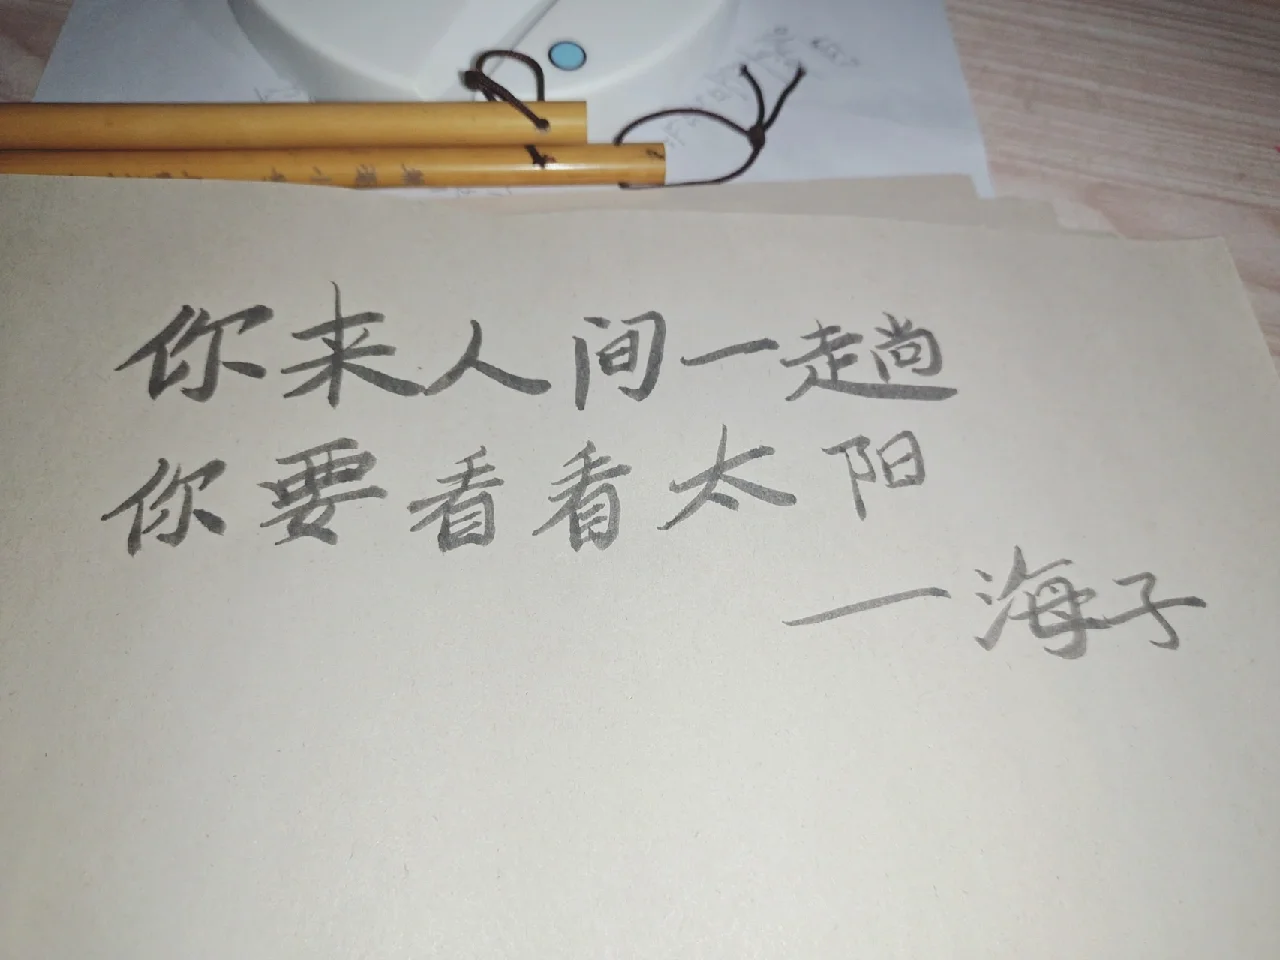 你来人间一趟
你要看看太阳
—海子